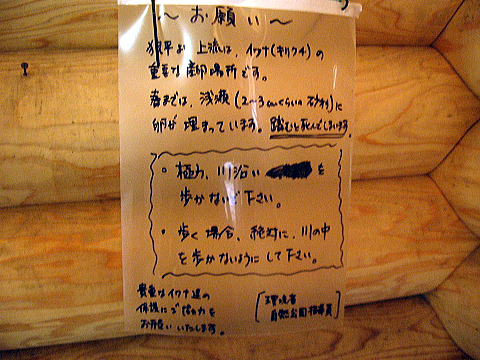 ～お願い～
狼平より上流は、イワナ(キリクチ)の
重要な産卵場所です。
春までは、浅瀬(2～3cmくらいの砂利)に
卵が埋まっています。踏むと死んでしまいます。
・極力、川沿い を
歩かないで下さい。
・歩く場合、絶対に、川の中
を歩かないようにして下さい。
貴重なイワナ達の
保護にご協力を
お願いいたします。
環境省
自然公園指導員